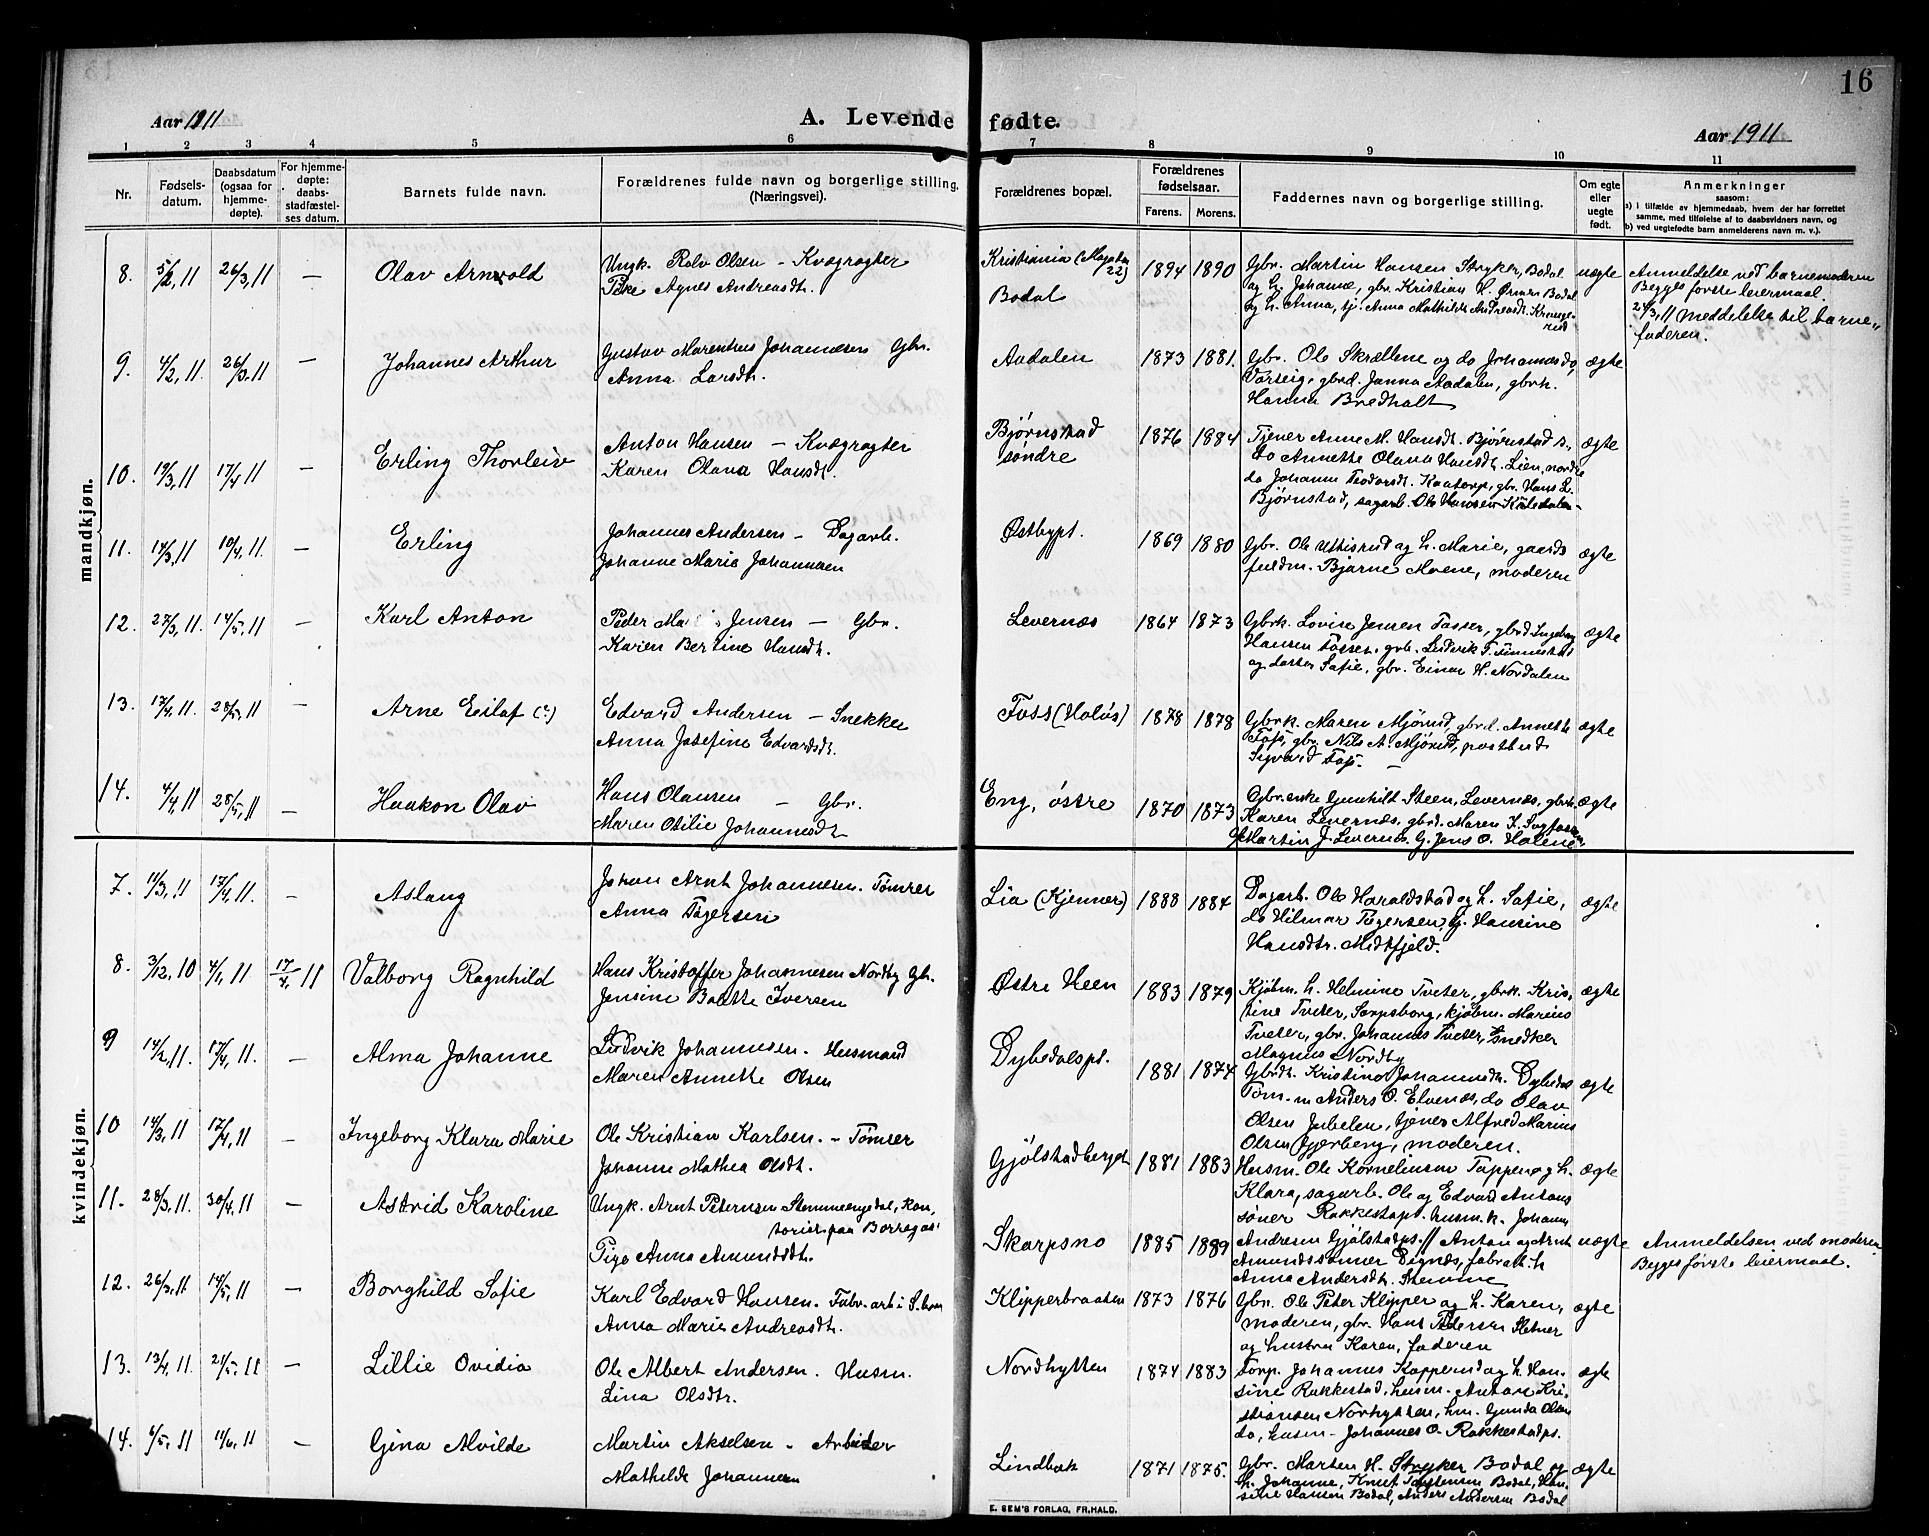 16
Aar 1911
A. Levende fødte.
Aar 1911
1 2 3 4 5 6 7 8 9 10 11
Nr.
Fødsels-
datum.
Daabsdatum
(ogsaa for
hjemme-
døpte).
For hjemme-
døpte:
daabs-
stadfæstel-
ses datum.
Barnets fulde navn.
Forældrenes fulde navn og borgerlige stilling.
(Næringsvei).
Forældrenes bopæl.
Forældrenes
fødselsaar.
Farens. Morens.
Faddernes navn og borgerlige stilling.
Om egte
eller
uegte
født.
Anmerkninger
saasom:
a) i tilfælde av hjemmedaab, hvem der har forrettet
samme, med tilføielse af to daabsvidners navn, og
b) ved uegtefødte barn anmelderens navn m. v.).
mandkjøn.
8. 5/2, 11 26/3, 11 — Olav Arnvold
Ungk. Rolv Olsen — Kvægrøgter
Pike Agnes Andreasdt.
Kristiania
22)
Bodal
1894 1890
Gbr. Martin Hansen Stryker, Bodal
og h. Johanne, gbr. Kristian H. Bodal
og h. Anna, tj. Anna Mathilde Andreasdt.
uægte
Anmeldelse ved barnemoderen
Begges første leiermaal.
24/3, 11 meddelelse til barne-
faderen.
9. 4/2, 11. 26/3, 11 — Johannes Arthur
Gustav Marenius Johannesen Gbr.
Anna Larsdt.
Aadalen
1873 1881.
Gbr. Ole Skrællene og do Johannes do,
Varteig, gbrd. Janna Aadalen, gbrh.
Hanna Bredholt
ægte
10. 19/3, 11 17/4 11 — Erling Thorleiv
Anton Hansen — Kvægrøgter
Karen Olava Hansdt.
Bjørnstad
søndre
1876 1884
Tjener Anne M. Hansdt. Bjørnstad s.,
do Annette Olava Hansdt. Lien, nordre
do Johanne Teodorsdt. Kaatorp, gbr. Hans L.
Bjørnstad, sagarb. Ole Hansen
ægte
11. 14/3, 11 10/4, 11. — Erling
Johannes Andersen — Dagarb.
Johanne Marie Johannesen
Østbypl.
1869 1880
Gbr. Ole Uttisrud og h. Marie, gaards
fuldm. Bjarne Moene, moderen
ægte
12. 27/3, 11. 14/5, 11 — Karl Anton
Peder Jensen — Gbr.
Karen Bertine Hansdt.
Levernæs
1864 1873
Gbrk. Lovise Jensen Tasser, gbrd. Ingeborg
Hansen Tosser, gbr. Ludvik T.
og søster Sofie, gbr. Einar H. Nordalen
ægte
13. 17/4, 11. 28/5, 11 — Arne Eilaf (:)
Edvard Andersen — Snekker
Anna Josefine Edvardsdt.
Foss (Holøs)
1878 1878
Gbrk. Maren Mjørud, gbrd. Annette
Foss, gbr. Nils A. Mjørud, postbud
Sigvard Foss. —
ægte
14. 4/4, 11 28/5, 11 — Haakon Olav
Hans Olausen — Gbr.
Maren Otilie Johannesdt.
Eng, østre
1870 1873
Gbr.enke Gunhild Steen, Levernæs, gbrk.
Karen Levernæs, gbrd. Maren K.
Martin J. Levernes. G. Jens O. Holene
ægte
kvindekjøn.
7. 11/3, 11 17/4, 11. — Aslaug
Johan Arnt Johannesen. Tømrer
Anna Tøgersen
Lia (Kjenner)
1888 1884
Dagarb. Ole Haraldstad og h. Sofie,
do Hilmar Tøgersen, tj. Hansine
Hansdtr. Midtfjeld.
ægte
8. 3/12, 10 4/1, 11 17/4, 11 Valborg Ragnhild
Hans Kristoffer Johannesen Nordby Gbr.
Jensine Bolette Iversen
Østre Heen
1883 1879
Kjøbm. h. Helmine Tveter, gbrk. Kris-
tine Tveter, Sarpsborg, kjøbm. Marius
Tveter, gbr. Johannes Tveter, snedker
Magnus Nordby
ægte
9 14/2, 11. 17/4, 11. — Alma Johanne
Ludvik Johannesen. Husmand
Maren Annette Olsen
Dybedalspl.
1881 1874
Gbrdt. Kristine Johannesdt. Dybedal
Tøm-m Anders O. Elvenæs, do Olav
Olsen Jubelen, tjener Alfred Marius
Olsen Gjerberg, moderen.
ægte
10 14/3, 11 17/4, 11 — Ingeborg Klara Marie
Ole Kristian Karlsen. — Tømrer
Johanne Mathea Olsdt.
Gjølstadberget
1881 1883
Husm. Ole Kornelinsen Tappen og h.
Klara, sagarb. Ole og Edvard Antons
sønner Rakkestapl. husm. k. Johanne
Andresen Gjølstadpl. //
ægte
11. 28/3, 11. 30/4, 11 — Astrid Karoline
Ungk. Arnt Petersen Stemmeengdal, Kon-
torist paa Borregaa
Pige Anna Amundsdt.
Skarpsno
1885 1889
Anton og Arnt
Amundssønner Dignæs, fabrarb. h
Anna Andersdt. Stemme
uægte
Anmeldelsen ved moderen
Begges første leiermaal.
12. 26/3, 11 14/5, 11 — Borghild Sofie
Karl Edvard Hansen. Fabr. arb. i S.borg
Anna Marie Andreasdt.
Klipperbraaten
1873 1876
Gbr. Ole Peter Klipper og h. Karen,
moderen, gbr. Hans Pedersen Sletner
og hustru Karen, faderen
ægte
13. 13/4, 11. 21/5. 11 — Lillie Ovidia
Ole Albert Andersen. Husm.
Lina Olsdtr.
Nordhytten
1874 1883
Torp. Johannes Kopperud og h. Han-
sine Rakkestad, husm. Anton Kri-
stiansen Norhytten, hm. Gunda Olsen
do, husm. Johannes O. Rakkestadpl.
ægte
14. 6/5, 11 11/6, 11 — Gina Alvilde
Martin Akselsen. Arbeider
Mathilde Johannesen
Lindbæk
1871 1875.
Gbr. Marten H. Stryker Bodal og
h. Johanne, Knut Torstensen Bodal, Han-
sine Hansen Bodal, Anders Andersen Bodal
ægte
E. SEM'S FORLAG, FR.HALD.